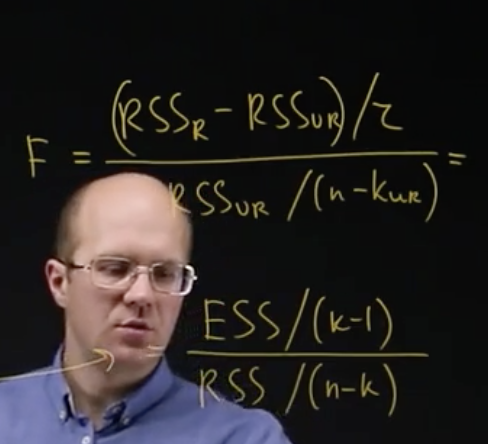 F = (RSS_R - RSS_UR)/r / RSS_UR /(n-k_UR) =
= ESS/(k-1) / RSS /(n-k)